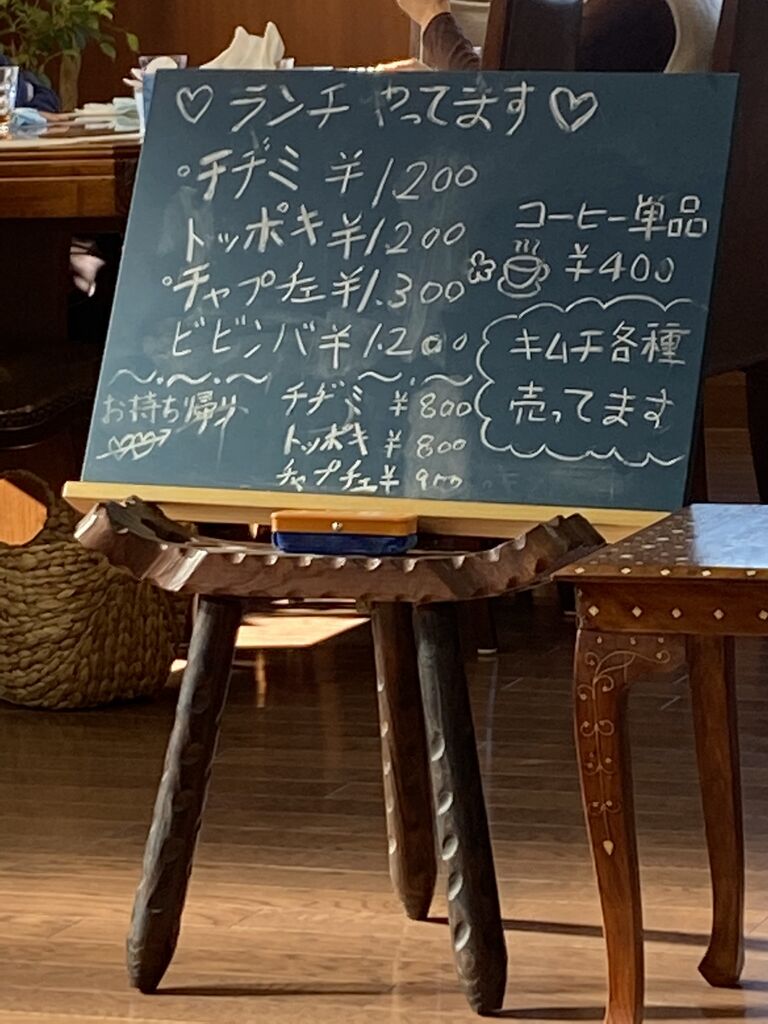 ♡ ランチ やってます ♡
チヂミ ¥1.200
トッポキ ¥1.200
チャプチェ ¥1.300
ビビンバ ¥1.200
コーヒー単品
¥400
キムチ各種
売ってます
お持ち帰り
チヂミ ¥800
トッポキ ¥800
チャプチェ ¥900